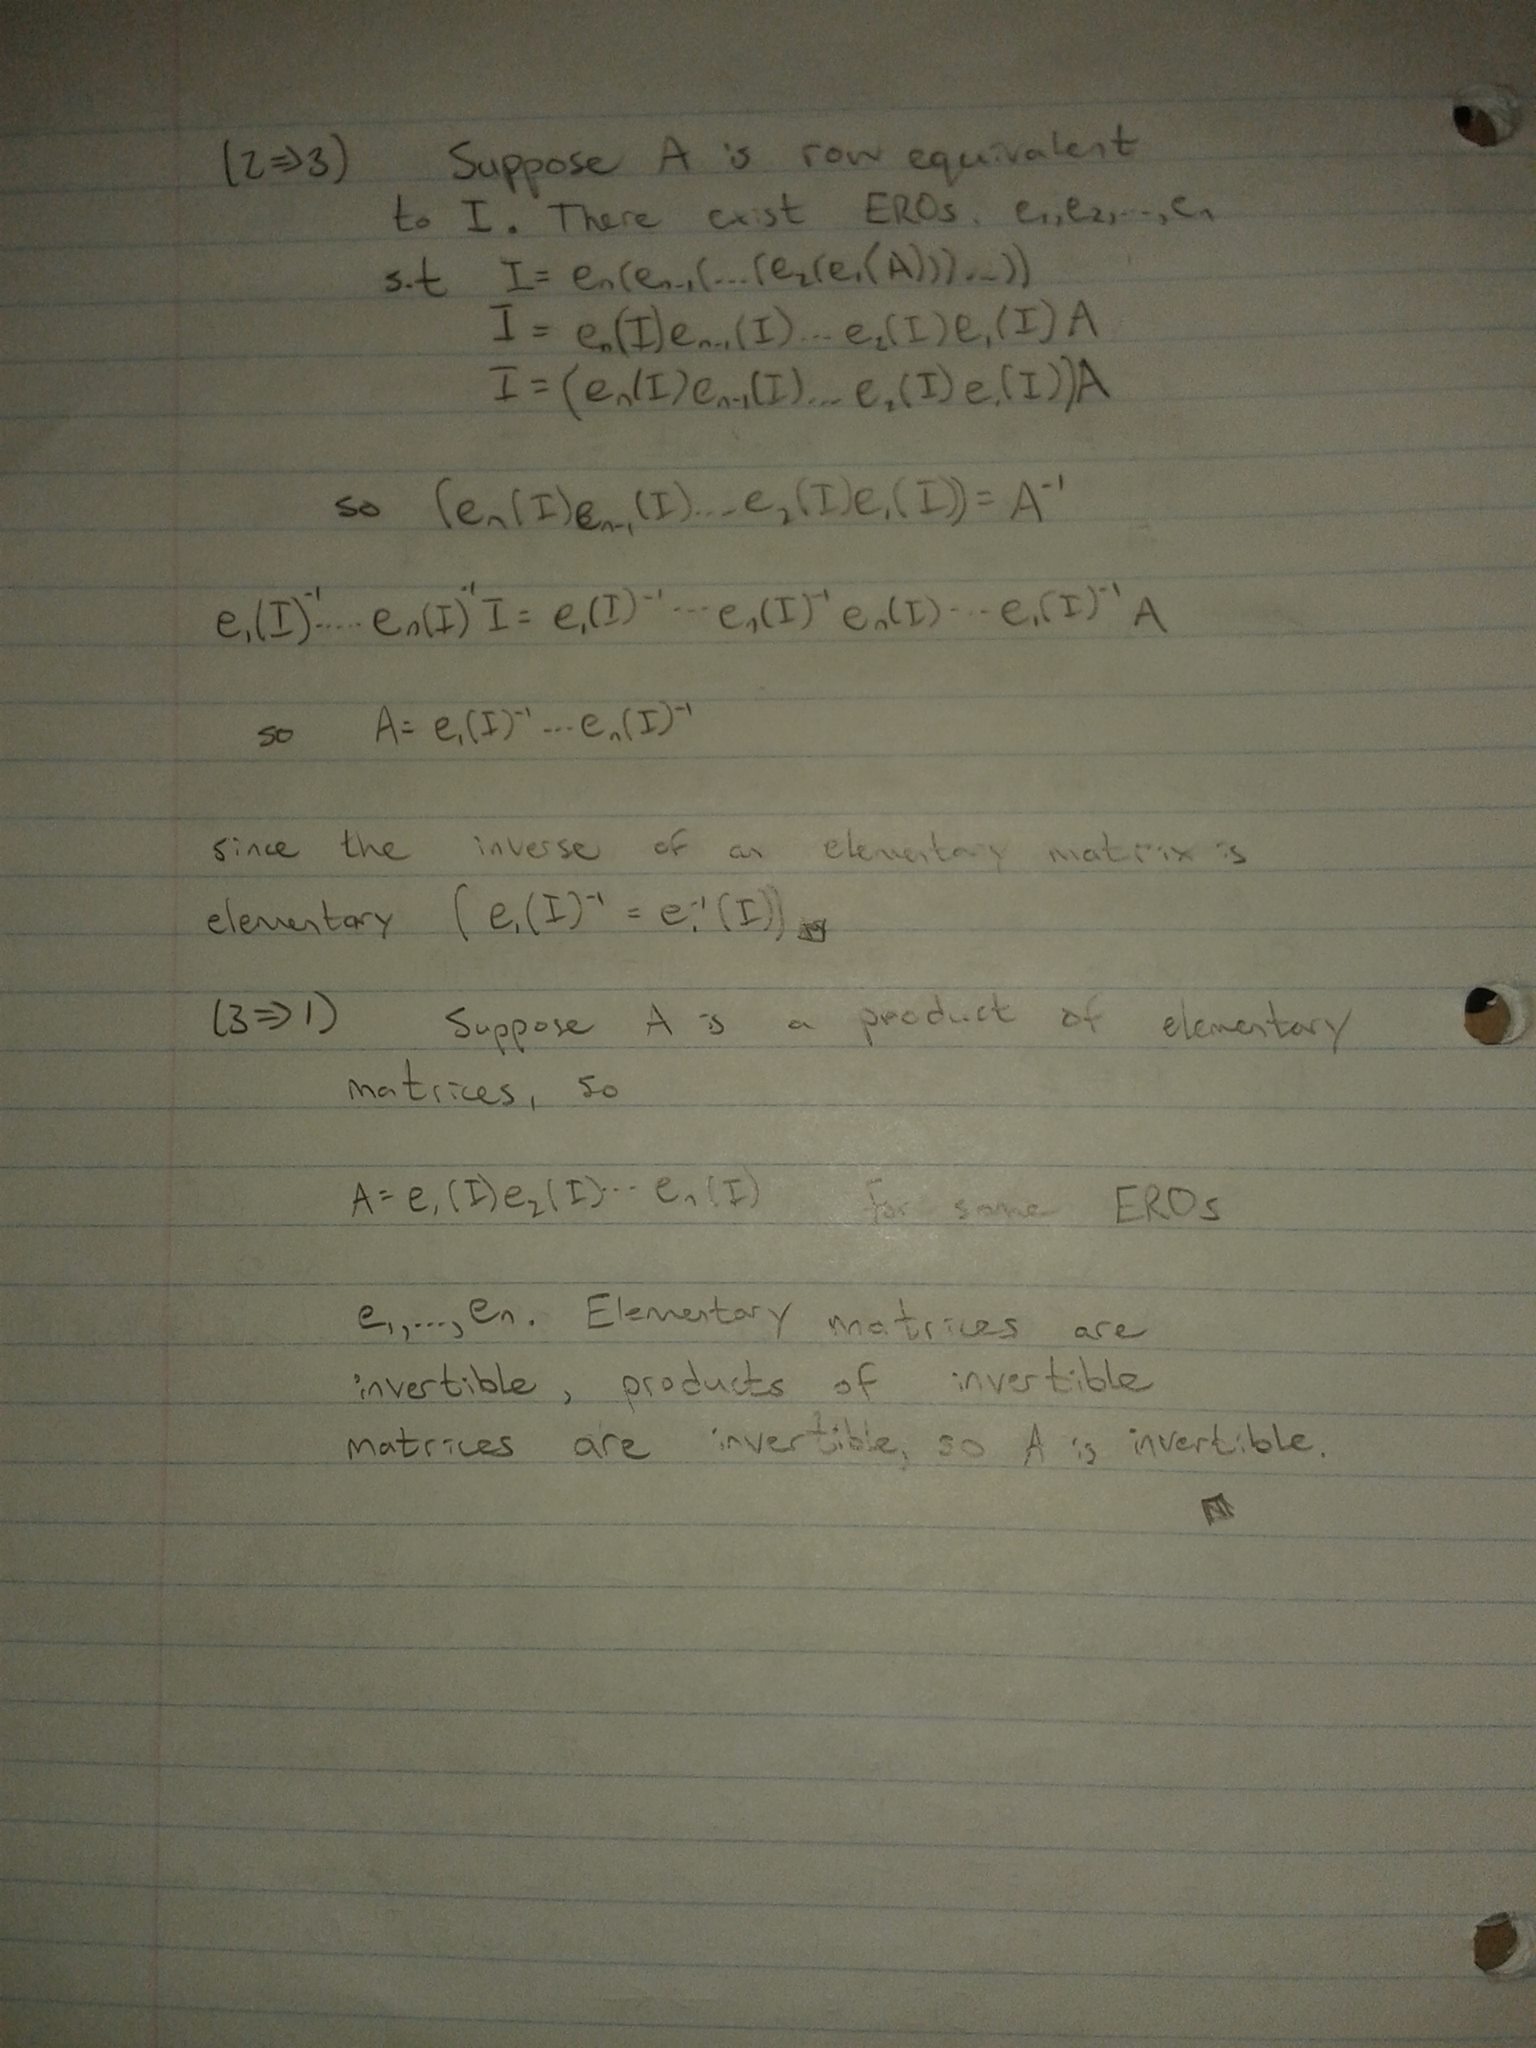 (2⇒3) Suppose A is row equivalent
to I. There exist EROs. e₁,e₂,...,eₙ
s.t I = eₙ(eₙ₋₁(...(e₂(e₁(A)))...))
I = eₙ(I)eₙ₋₁(I)...e₂(I)e₁(I)A
I = (eₙ(I)eₙ₋₁(I)...e₂(I)e₁(I))A
so (eₙ(I)eₙ₋₁(I)...e₂(I)e₁(I)) = A⁻¹
e₁(I)⁻¹.....eₙ(I)⁻¹I = e₁(I)⁻¹...eₙ(I)⁻¹eₙ(I)...e₁(I)⁻¹A
so A = e₁(I)⁻¹...eₙ(I)⁻¹
since the inverse of an elementary matrix is
elementary (eᵢ(I)⁻¹ = eᵢ⁻¹(I))
(3⇒1) Suppose A is a product of elementary
matrices, so
A = e₁(I)e₂(I)...eₙ(I) for some EROs
e₁,...,eₙ. Elementary matrices are
invertible, products of invertible
matrices are invertible, so A is invertible.